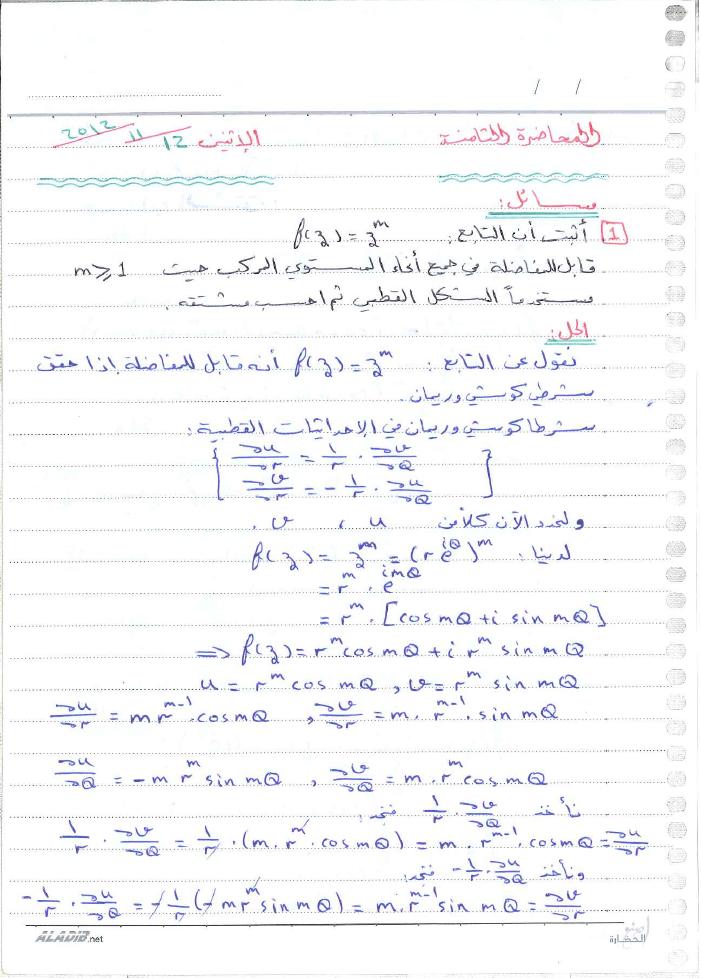 / /
المحاضرة الثامنة الاثنين 12/11/2012
مسائل:
1 أثبت أن التابع: f(z) = z^m
قابل للمفاضلة في جميع أنحاء المستوي المركب حيث m ≥ 1
مستخدماً الشكل القطبي ثم احسب مشتقه.
الحل:
نقول عن التابع: f(z) = z^m أنه قابل للمفاضلة إذا حقق
شرطي كوشي وريمان.
شرطا كوشي وريمان في الإحداثيات القطبية:
∂u/∂r = 1/r · ∂v/∂θ
∂v/∂r = -1/r · ∂u/∂θ
ولنحدد الآن كلاً من u ، v .
لدينا: f(z) = z^m = (r e^{iθ})^m
= r^m · e^{imθ}
= r^m · [cos mθ + i sin mθ]
⟹ f(z) = r^m cos mθ + i r^m sin mθ
u = r^m cos mθ , v = r^m sin mθ
∂u/∂r = m r^{m-1} · cos mθ , ∂v/∂r = m · r^{m-1} · sin mθ
∂u/∂θ = -m r^m sin mθ , ∂v/∂θ = m · r^m cos mθ
نأخذ 1/r · ∂v/∂θ فنجد:
1/r · ∂v/∂θ = 1/r · (m · r^m · cos mθ) = m · r^{m-1} · cos mθ = ∂u/∂r
ونأخذ -1/r · ∂u/∂θ فنجد:
-1/r · ∂u/∂θ = -1/r (-m r^m sin mθ) = m · r^{m-1} sin mθ = ∂v/∂r
ALADIB.net
الحضارة